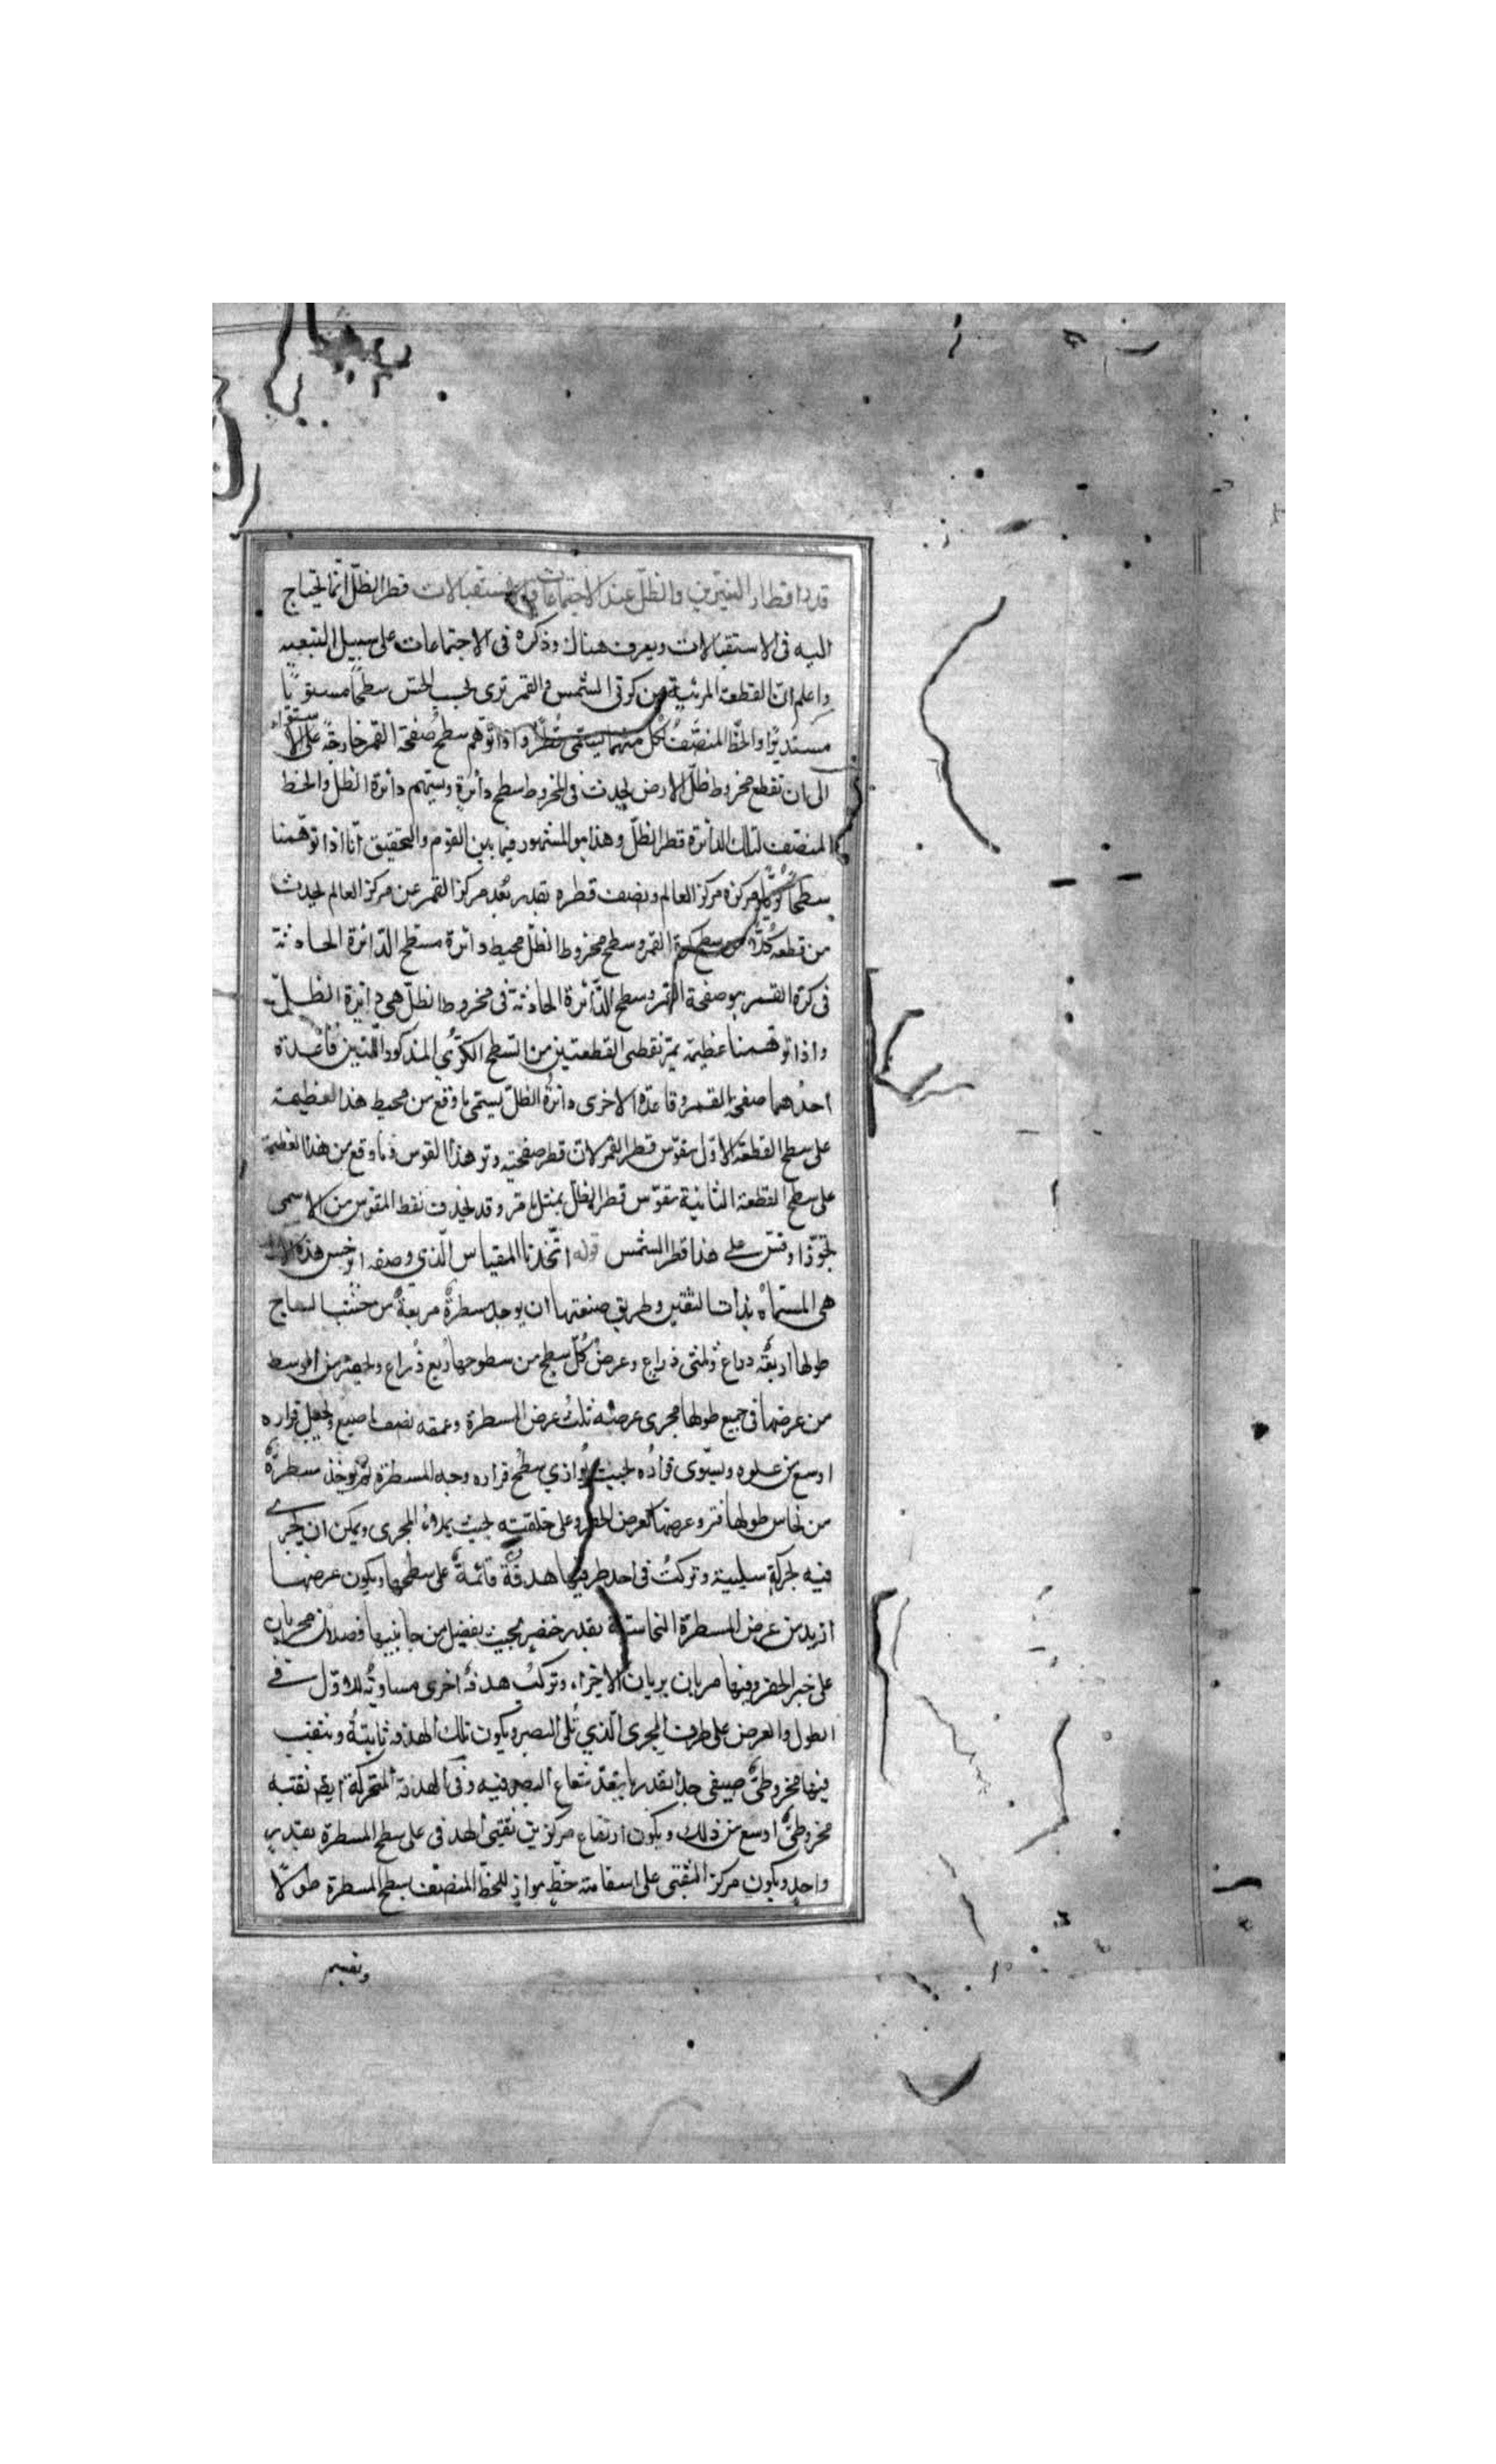 قدر اقطار النيّرين والظلّ عند الاجتماعات والاستقبالات قطر الظلّ انّما يحتاج
اليه فى الاستقبالات ويعرف هناك وذكره فى الاجتماعات على سبيل التبعيه
واعلم انّ القطعة المرئية من كرتى الشمس والقمر ترى بحسب الحسّ سطحًا مستويًا
مستديرًا والخطّ المنصّف كلّ منهما يسمّى قطرًا واذا توهّم سطح صفحة القمر خارجة على الاستقواء
الى ان تقطع مخروط ظلّ الارض يحدث فى المخروط سطح دائرة وسيهم دائرة الظلّ والخط
المنصّف لتلك الدائرة قطر الظلّ وهذا هو المشهور فيما بين القوم والتحقيق انّا اذا توهّمنا
سطحًا كريًّا مركزه مركز العالم ونصف قطره بقدر بُعد مركز القمر عن مركز العالم يحدث
من قطعه كلّا من سطح كرة القمر وسطح مخروط الظلّ محيط دائرة مسطح الدّائرة الحادثة
فى كرة القمر هو صفحة القمر وسطح الدّائرة الحادثة فى مخروط الظلّ هى دائرة الظلّ
واذا توهّمنا عظيمة تمرّ بقطبى القطعتين من السّطح الكرّي المذكور اللّتين قاعدة
احدٰهما صفحة القمر وقاعدة الاخرى دائرة الظلّ يسمّى ما وقع من محيط هذا العظيمة
على سطح القطعة الاوّل بقوّس قطر القمر لانّ قطر صفحته وتر هذا القوس وما وقع من هذا العظيمة
على سطح القطعة الثانية بقوّس قطر الظلّ بمثل ما مر وقد يحذف نقط المقوّس من الاسمى
تجوّزًا وقس على هذا قطر الشمس قوله اتّخذنا المقياس الّذى وصفه ابرخس هذه الالة
هى المسمّاة بذات الثقبتين وطريق صنعتها ان يوجد مسطرة مربعة من خشب الساج
طولها اربعة ذراع وثلثى ذراع وعرض كلّ سطح من سطوحها ربع ذراع ويحفر من الوسط
من عرضها فى جميع طولها مجرى عرضه ثلث عرض المسطرة وعمقه نصف اصبع ويجعل قراره
اوسع من علوه ويسوّى قراره بحيث يوازي سطح قراره وجه المسطرة ثمّ يوخذ مسطرة
من نحاس طولها فتر وعرضها كعرض الحفر وعلى خلقته بحيث يملاء المجرى ويمكن ان يجرى
فيه بحركة سلسة وتركّب فى احد طرفيها هدفة قائمة على سطحها ويكون عرضها
ازيد من عرض المسطرة النحاسية بقدر خنصر بحيث يفضل من جانبيها فصلان يجريان
على خبر الحفر وفيها مريان يريان الاخيراء وتركّب هدفة اخرى مساوية للاوّل فى
الطول والعرض على طرف المجرى الّذي تلى البصر ويكون تلك الهدفة ثابتة ويثقب
فيها مخروطىّ ضيق جدا بقدر ما ينفذ شعاع البصر فيه وفى الهدفة المتحركة ايضا ثقبه
مخروطىّ اوسع من ذلك ويكون ارتفاع مركزى ثقبتى الهدفى على سطح المسطرة بقدر
واحد ويكون مركز الثقبتى على استقامة خطّ مواز للخطّ المنصّف بسطح المسطرة طولًا
ونقسم